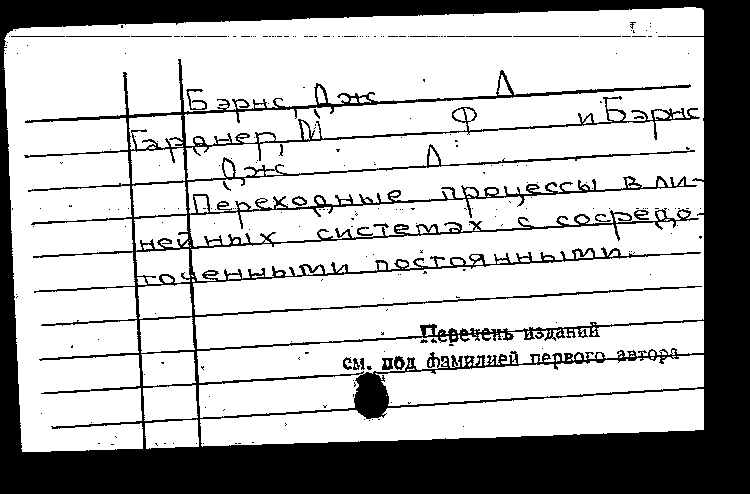 Бэрнс, Дж Л
Гарднер, М Ф и Бэрнс,
Дж Л
Переходные процессы в ли-
нейных системах с сосредо-
точенными постоянными.
Перечень изданий
см. под фамилией первого автора